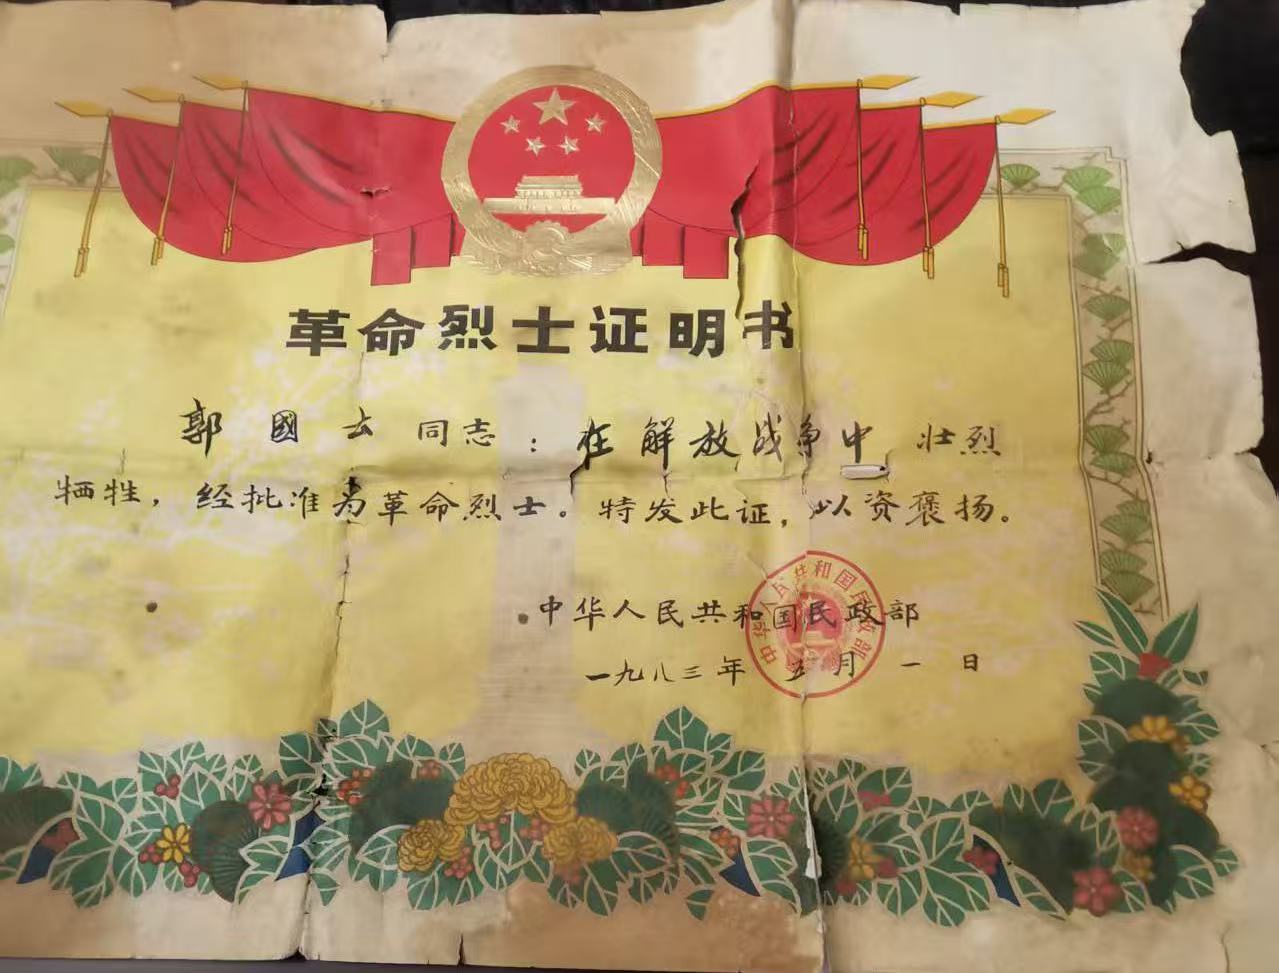 革命烈士证明书
郭國云同志：在解放战争中壮烈
牺牲，经批准为革命烈士。特发此证，以资褒扬。
中华人民共和国民政部
一九八三年五月一日
中华人民共和国民政部